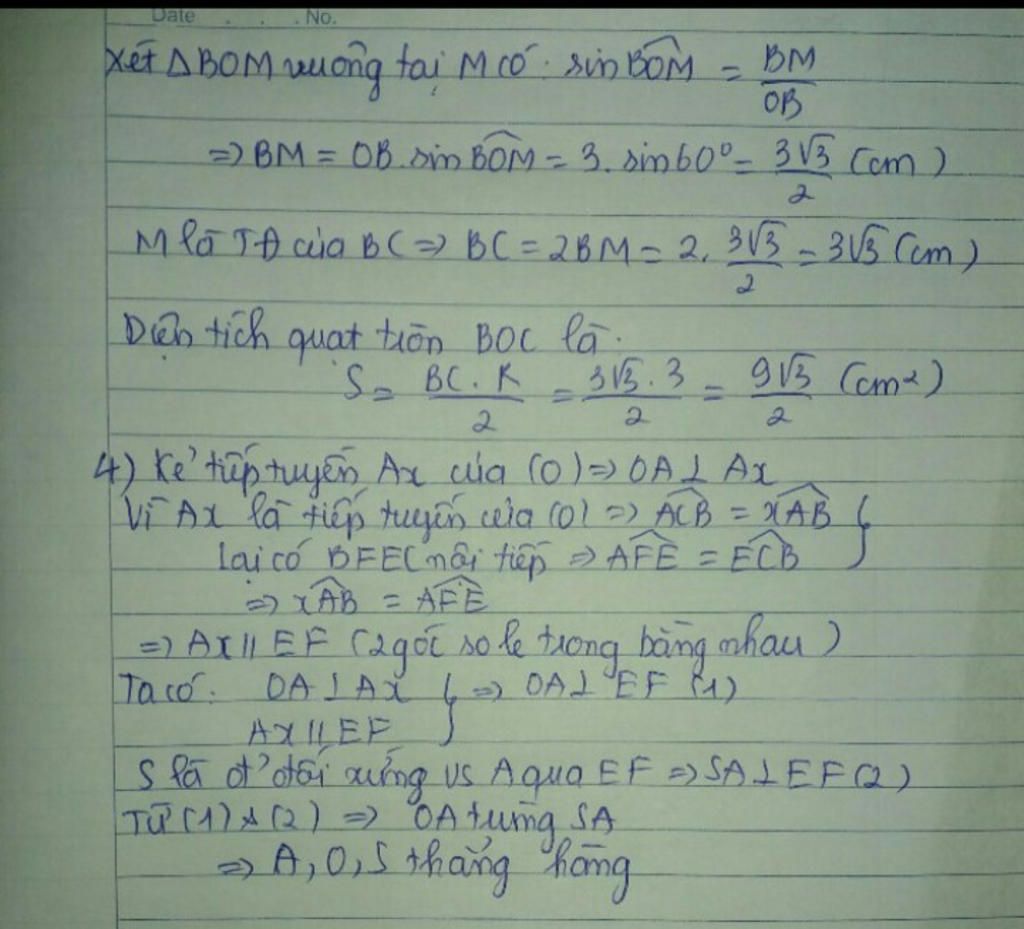 Date . . . No.
Xét ΔBOM vuông tại M có: sin BOM̂ = BM/OB
=> BM = OB. sin BOM̂ = 3. sin60° = 3√3/2 (cm)
M là TĐ của BC => BC = 2BM = 2. 3√3/2 = 3√3 (cm)
Diện tích quạt tròn BOC là:
S = BC.R/2 = 3√3.3/2 = 9√3/2 (cm²)
4) Kẻ tiếp tuyến Ax của (O) => OA ⊥ Ax
Vì Ax là tiếp tuyến của (O) => ACB̂ = xAB̂ }
Lại có BFEC nội tiếp => AFÊ = ECB̂
=> xAB̂ = AFÊ
=> Ax // EF (2 góc so le trong bằng nhau)
Ta có: OA ⊥ Ax } => OA ⊥ EF (1)
Ax // EF
S là đ' đối xứng vs A qua EF => SA ⊥ EF (2)
Từ (1) & (2) => OA trùng SA
=> A, O, S thẳng hàng